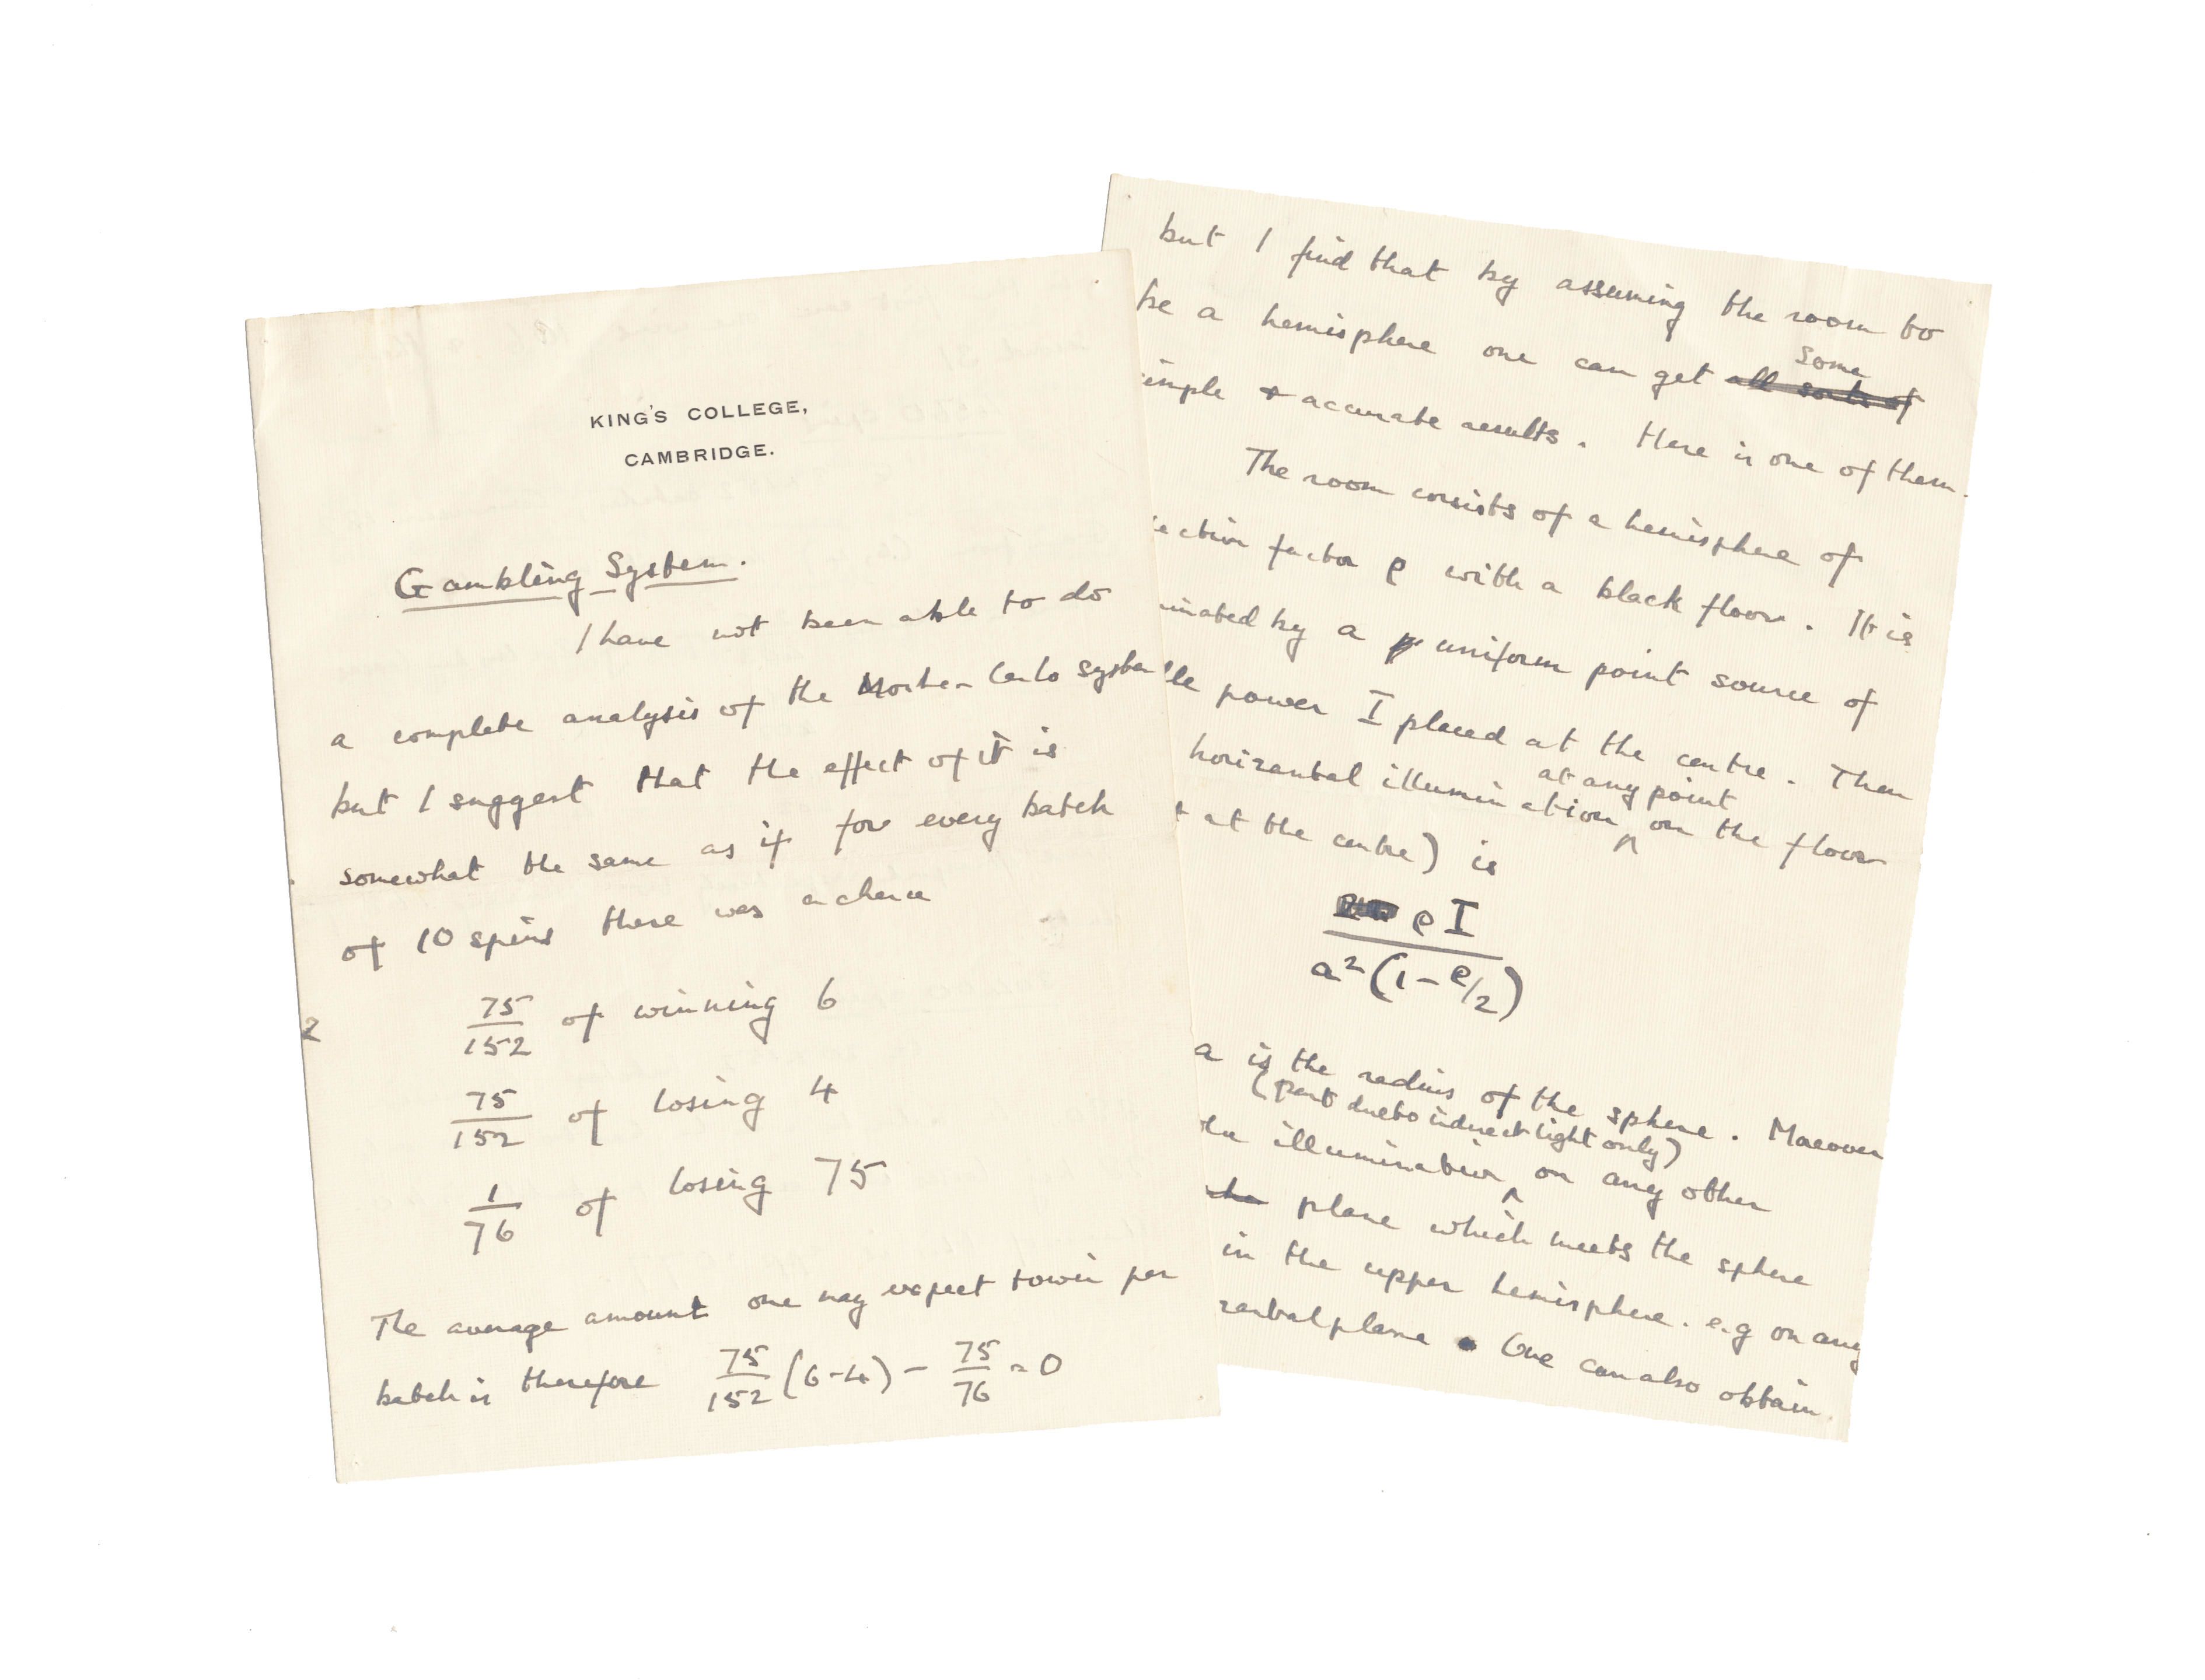 KING'S COLLEGE,
CAMBRIDGE.
Gambling System.
I have not been able to do
a complete analysis of the Monte Carlo system
but I suggest that the effect of it is
somewhat the same as if for every batch
of 10 spins there was a chance
75/152 of winning 6
2
75/152 of losing 4
1/76 of losing 75
The average amount one may expect to win per
batch is therefore 75/152 (6-4) - 75/76 = 0
but I find that by assuming the room to
be a hemisphere one can get all sorts of some
imple + accurate results. Here is one of them.
The room consists of a hemisphere of
ection factor ρ with a black floor. It is
minated by a uniform point source of
le power I placed at the centre. Then
horizantal illumination at any point on the floor
t at the centre) is
ρI
a²(1-ρ/2)
a is the radius of the sphere. Moreover
(part due to indirect light only)
illumination on any other
plane which meets the sphere
in the upper hemisphere. e.g on any
zantal plane. One can also obtain